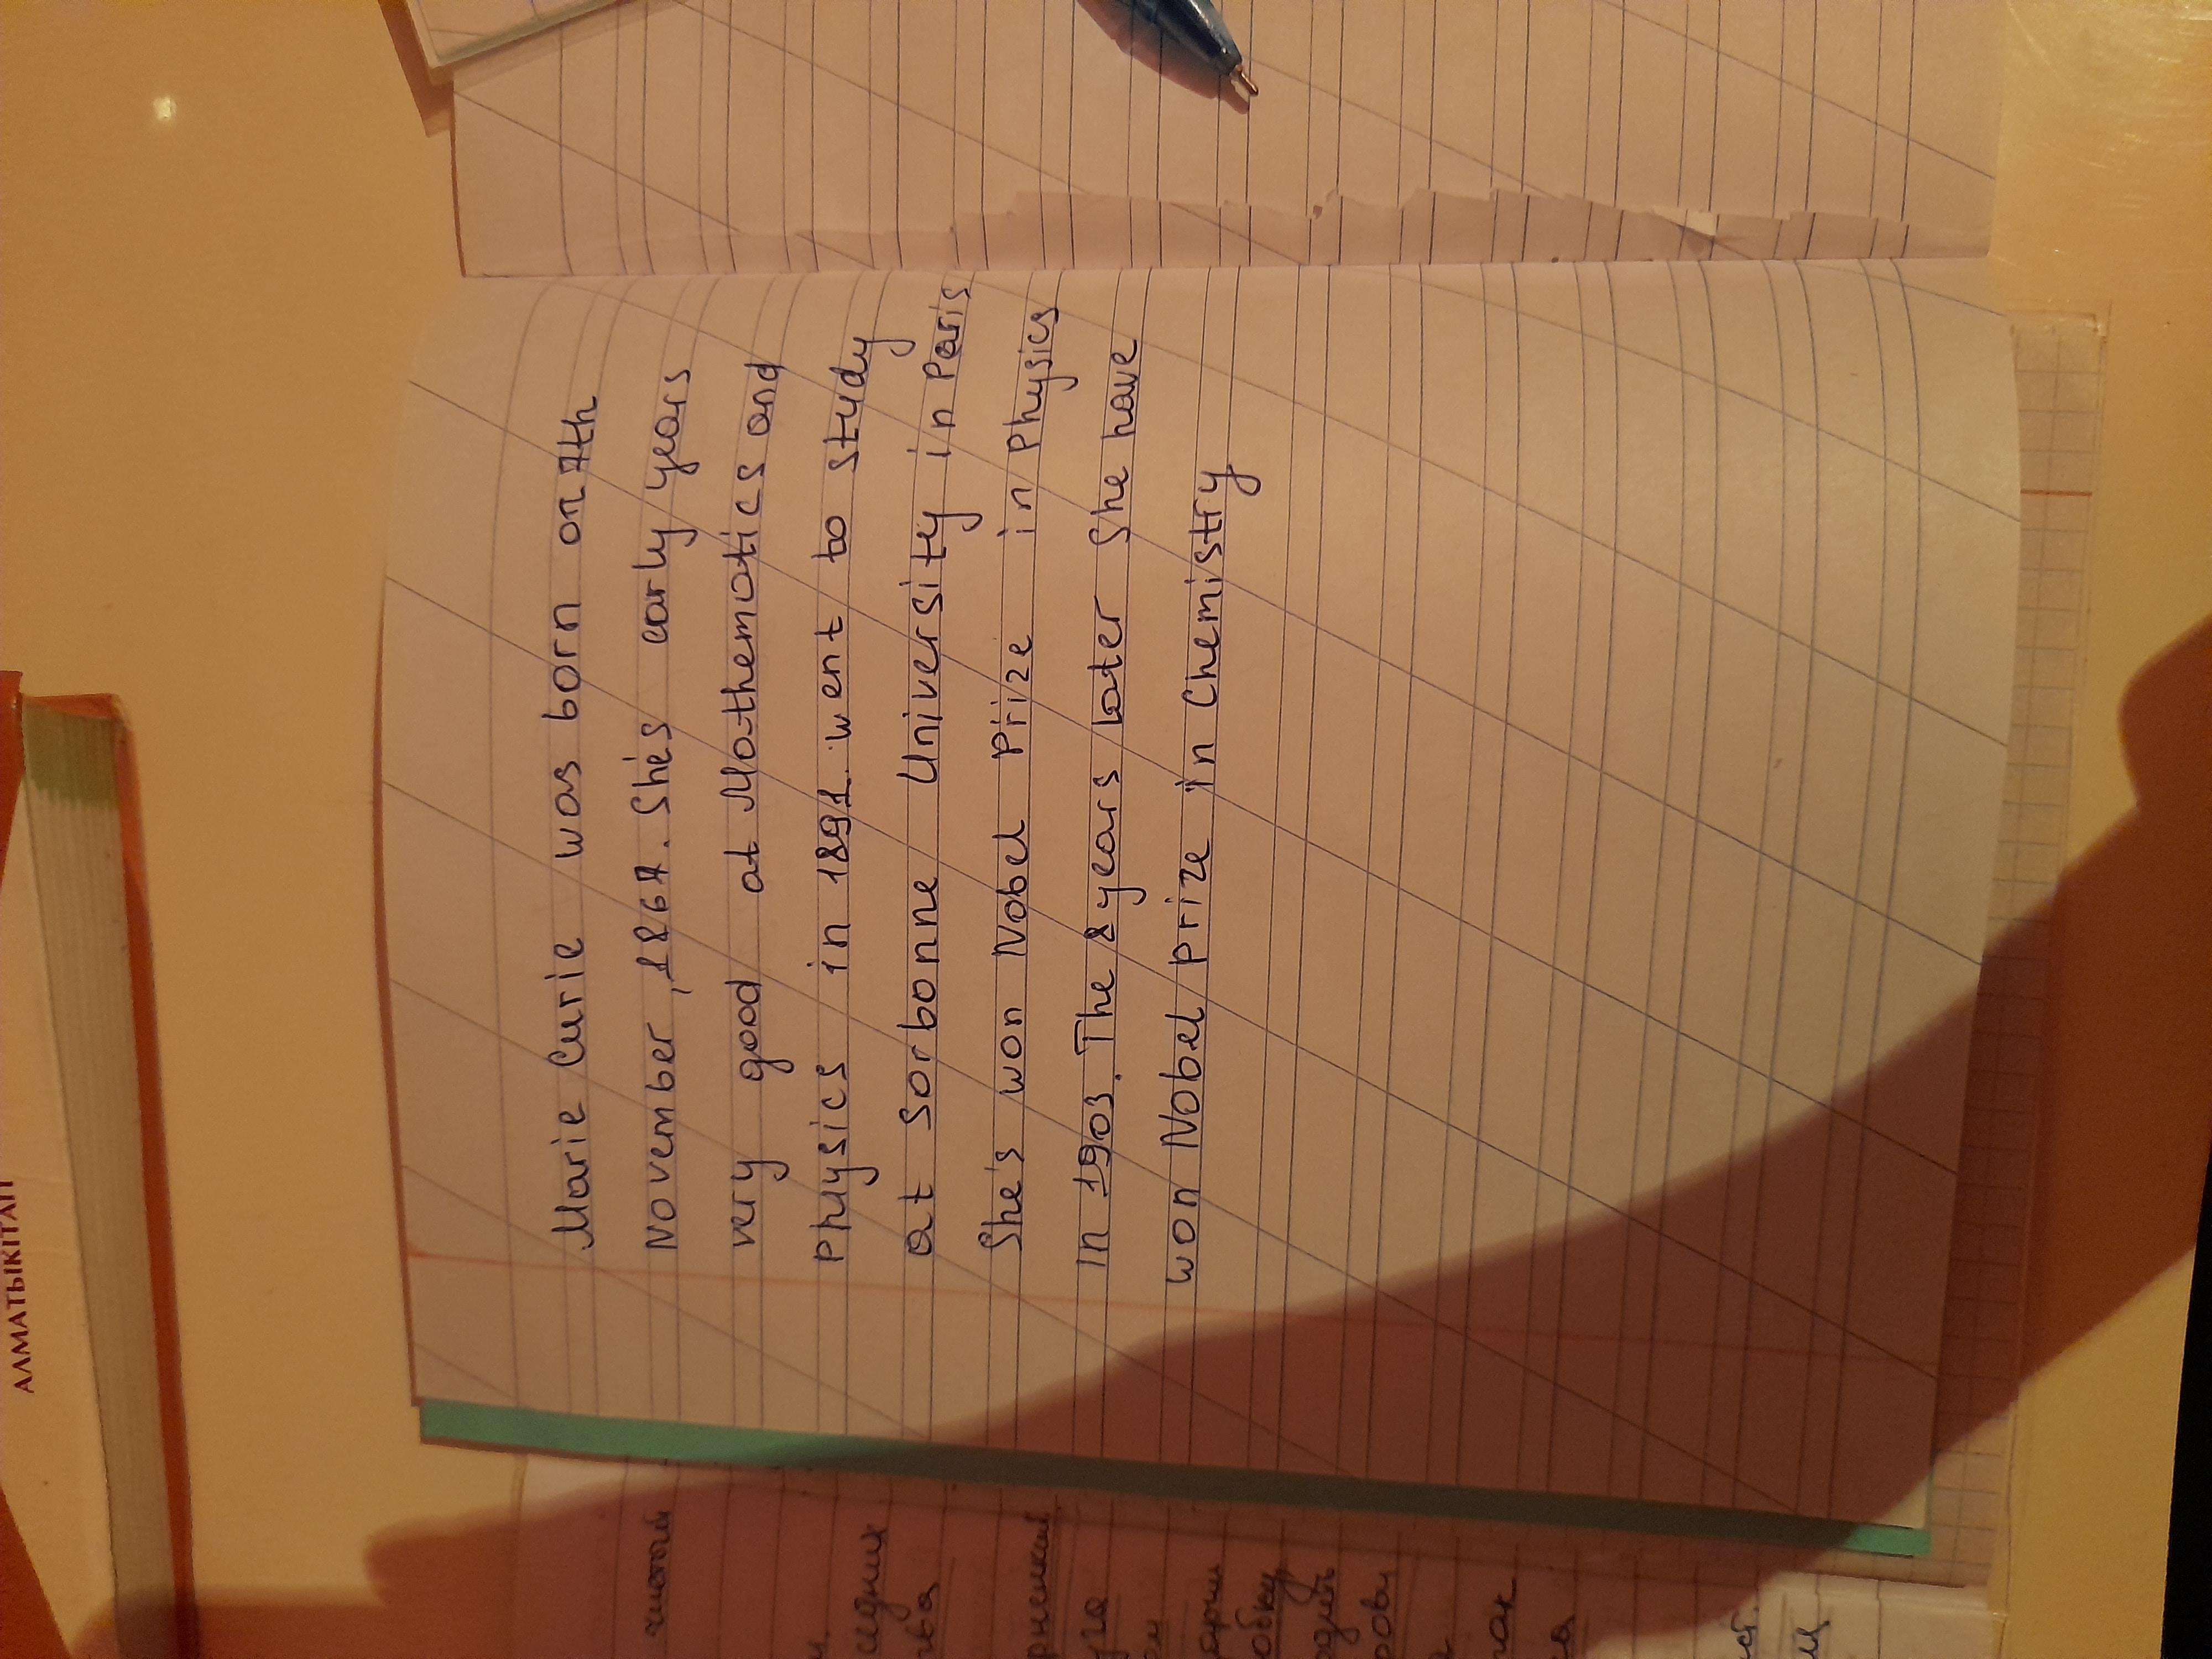 Marie Curie was born on 7th
November, 1867. She's early years
very good at Mathematics and
Physics in 1891. went to study
at Sorbonne University in Paris
She's won Nobel Prize in Physics
In 1903. The 8 years later She have
won Nobel Prize in Chemistry
АЛМАТЫКІТАП